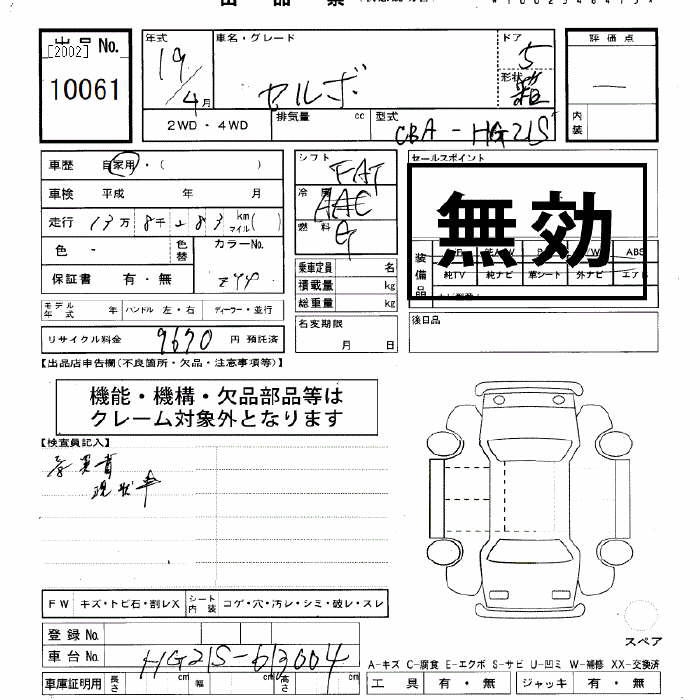 出品 No.
[2002]
10061
年式 車名・グレード ドア 評価点
19/4月 セルボ 5 形状 箱 ―
内装
2WD・4WD 排気量 cc 型式 CBA-HG21S
車歴 自家用・( )
シフト FAT
セールスポイント
車検 平成 年 月
冷房 AAC
無効
走行 13万8千283km マイル( )
燃料 G
色 - 色替 カラーNo. Z44
乗車定員 名
装備品 ABS
純TV 純ナビ 革シート 外ナビ エアB
保証書 有・無
積載量 kg
総重量 kg
モデル年式 年 ハンドル 左・右 ディーラー・並行
名変期限 月 日
後日品
リサイクル料金 9670円 預託済
【出品店申告欄(不良箇所・欠品・注意事項等)】
機能・機構・欠品部品等は
クレーム対象外となります
【検査員記入】
現状車
FW キズ・トビ石・割レX シート内装 コゲ・穴・汚レ・シミ・破レ・スレ
スペア
登録No.
車台No. HG21S-613004
A-キズ C-腐食 E-エクボ S-サビ U-凹ミ W-補修 XX-交換済
車庫証明用 長さ cm 幅 cm 高さ cm
工具 有・無 ジャッキ 有・無